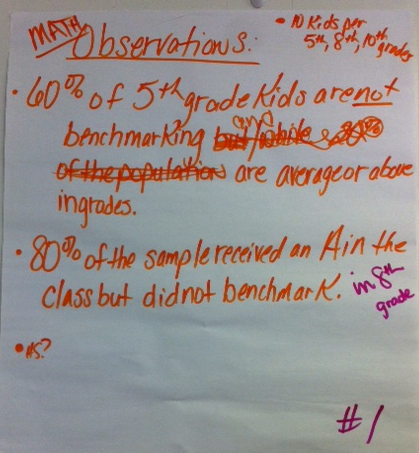 MATH
Observations:
• 10 Kids per
5th, 8th, 10th
grades
• 60% of 5th grade Kids are not
benchmarking and
of the population are average or above
in grades.
• 80% of the sample received an A in the
class but did not benchmark. in 8th
grade
• HS?
#1